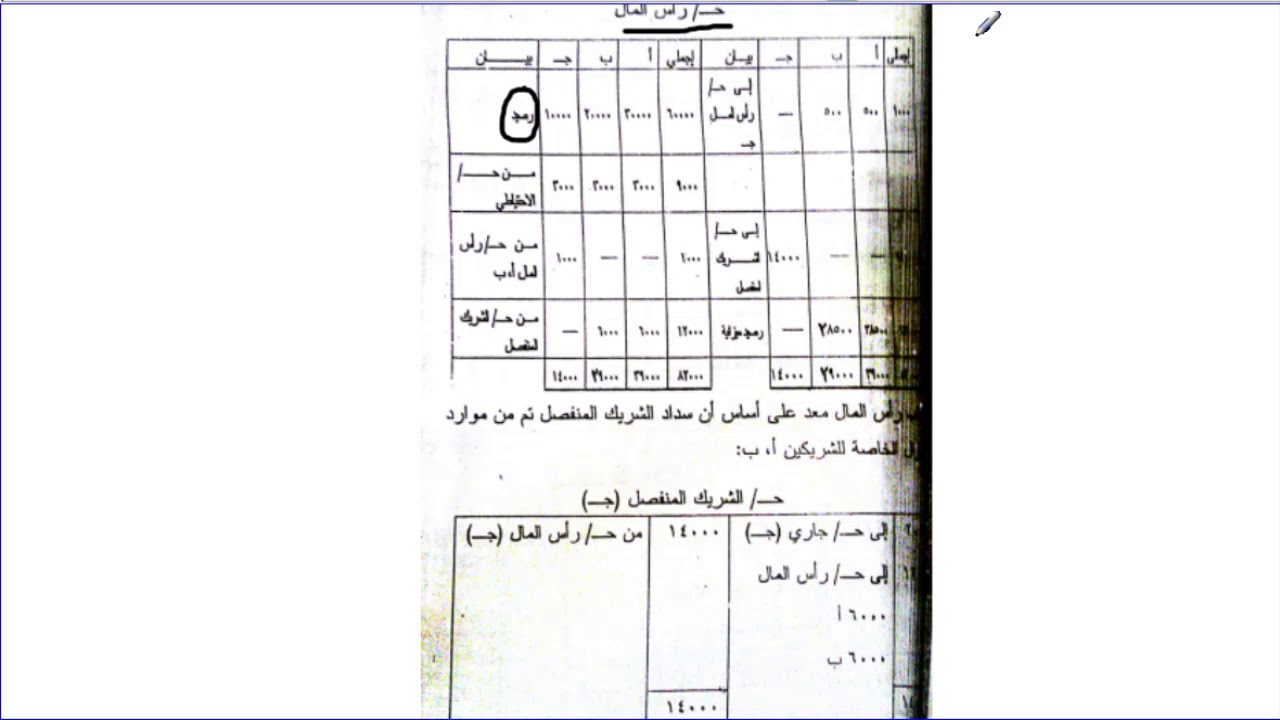 حـ/ رأس المال
إجمالي أ ب جـ بيـان إجمالي أ ب جـ بيــــان
١٠٠٠ ٥٠٠ ٥٠٠ — إلى حـ/ رأس المال جـ ٦٠٠٠٠ ٣٠٠٠٠ ٢٠٠٠٠ ١٠٠٠٠ رصيد
٩٠٠٠ ٣٠٠٠ ٣٠٠٠ ٣٠٠٠ من حـ/ الاحتياطي
— — ١٤٠٠٠ إلى حـ/ الشريك المنفصل ١٠٠٠ — — ١٠٠٠ من حـ/ رأس المال أ، ب
٣٨٥٠٠ ٢٨٥٠٠ — رصيد ميزانية ١٢٠٠٠ ٦٠٠٠ ٦٠٠٠ — من حـ/ الشريك المنفصل
٣٩٠٠٠ ٢٩٠٠٠ ١٤٠٠٠ ٨٢٠٠٠ ٣٩٠٠٠ ٢٩٠٠٠ ١٤٠٠٠
رأس المال معد على أساس أن سداد الشريك المنفصل تم من موارد
الخاصة للشريكين أ، ب:
حـ/ الشريك المنفصل (جـ)
إلى حـ/ جاري (جـ) ١٤٠٠٠ من حـ/ رأس المال (جـ)
إلى حـ/ رأس المال
٦٠٠٠ أ
٦٠٠٠ ب
١٤٠٠٠